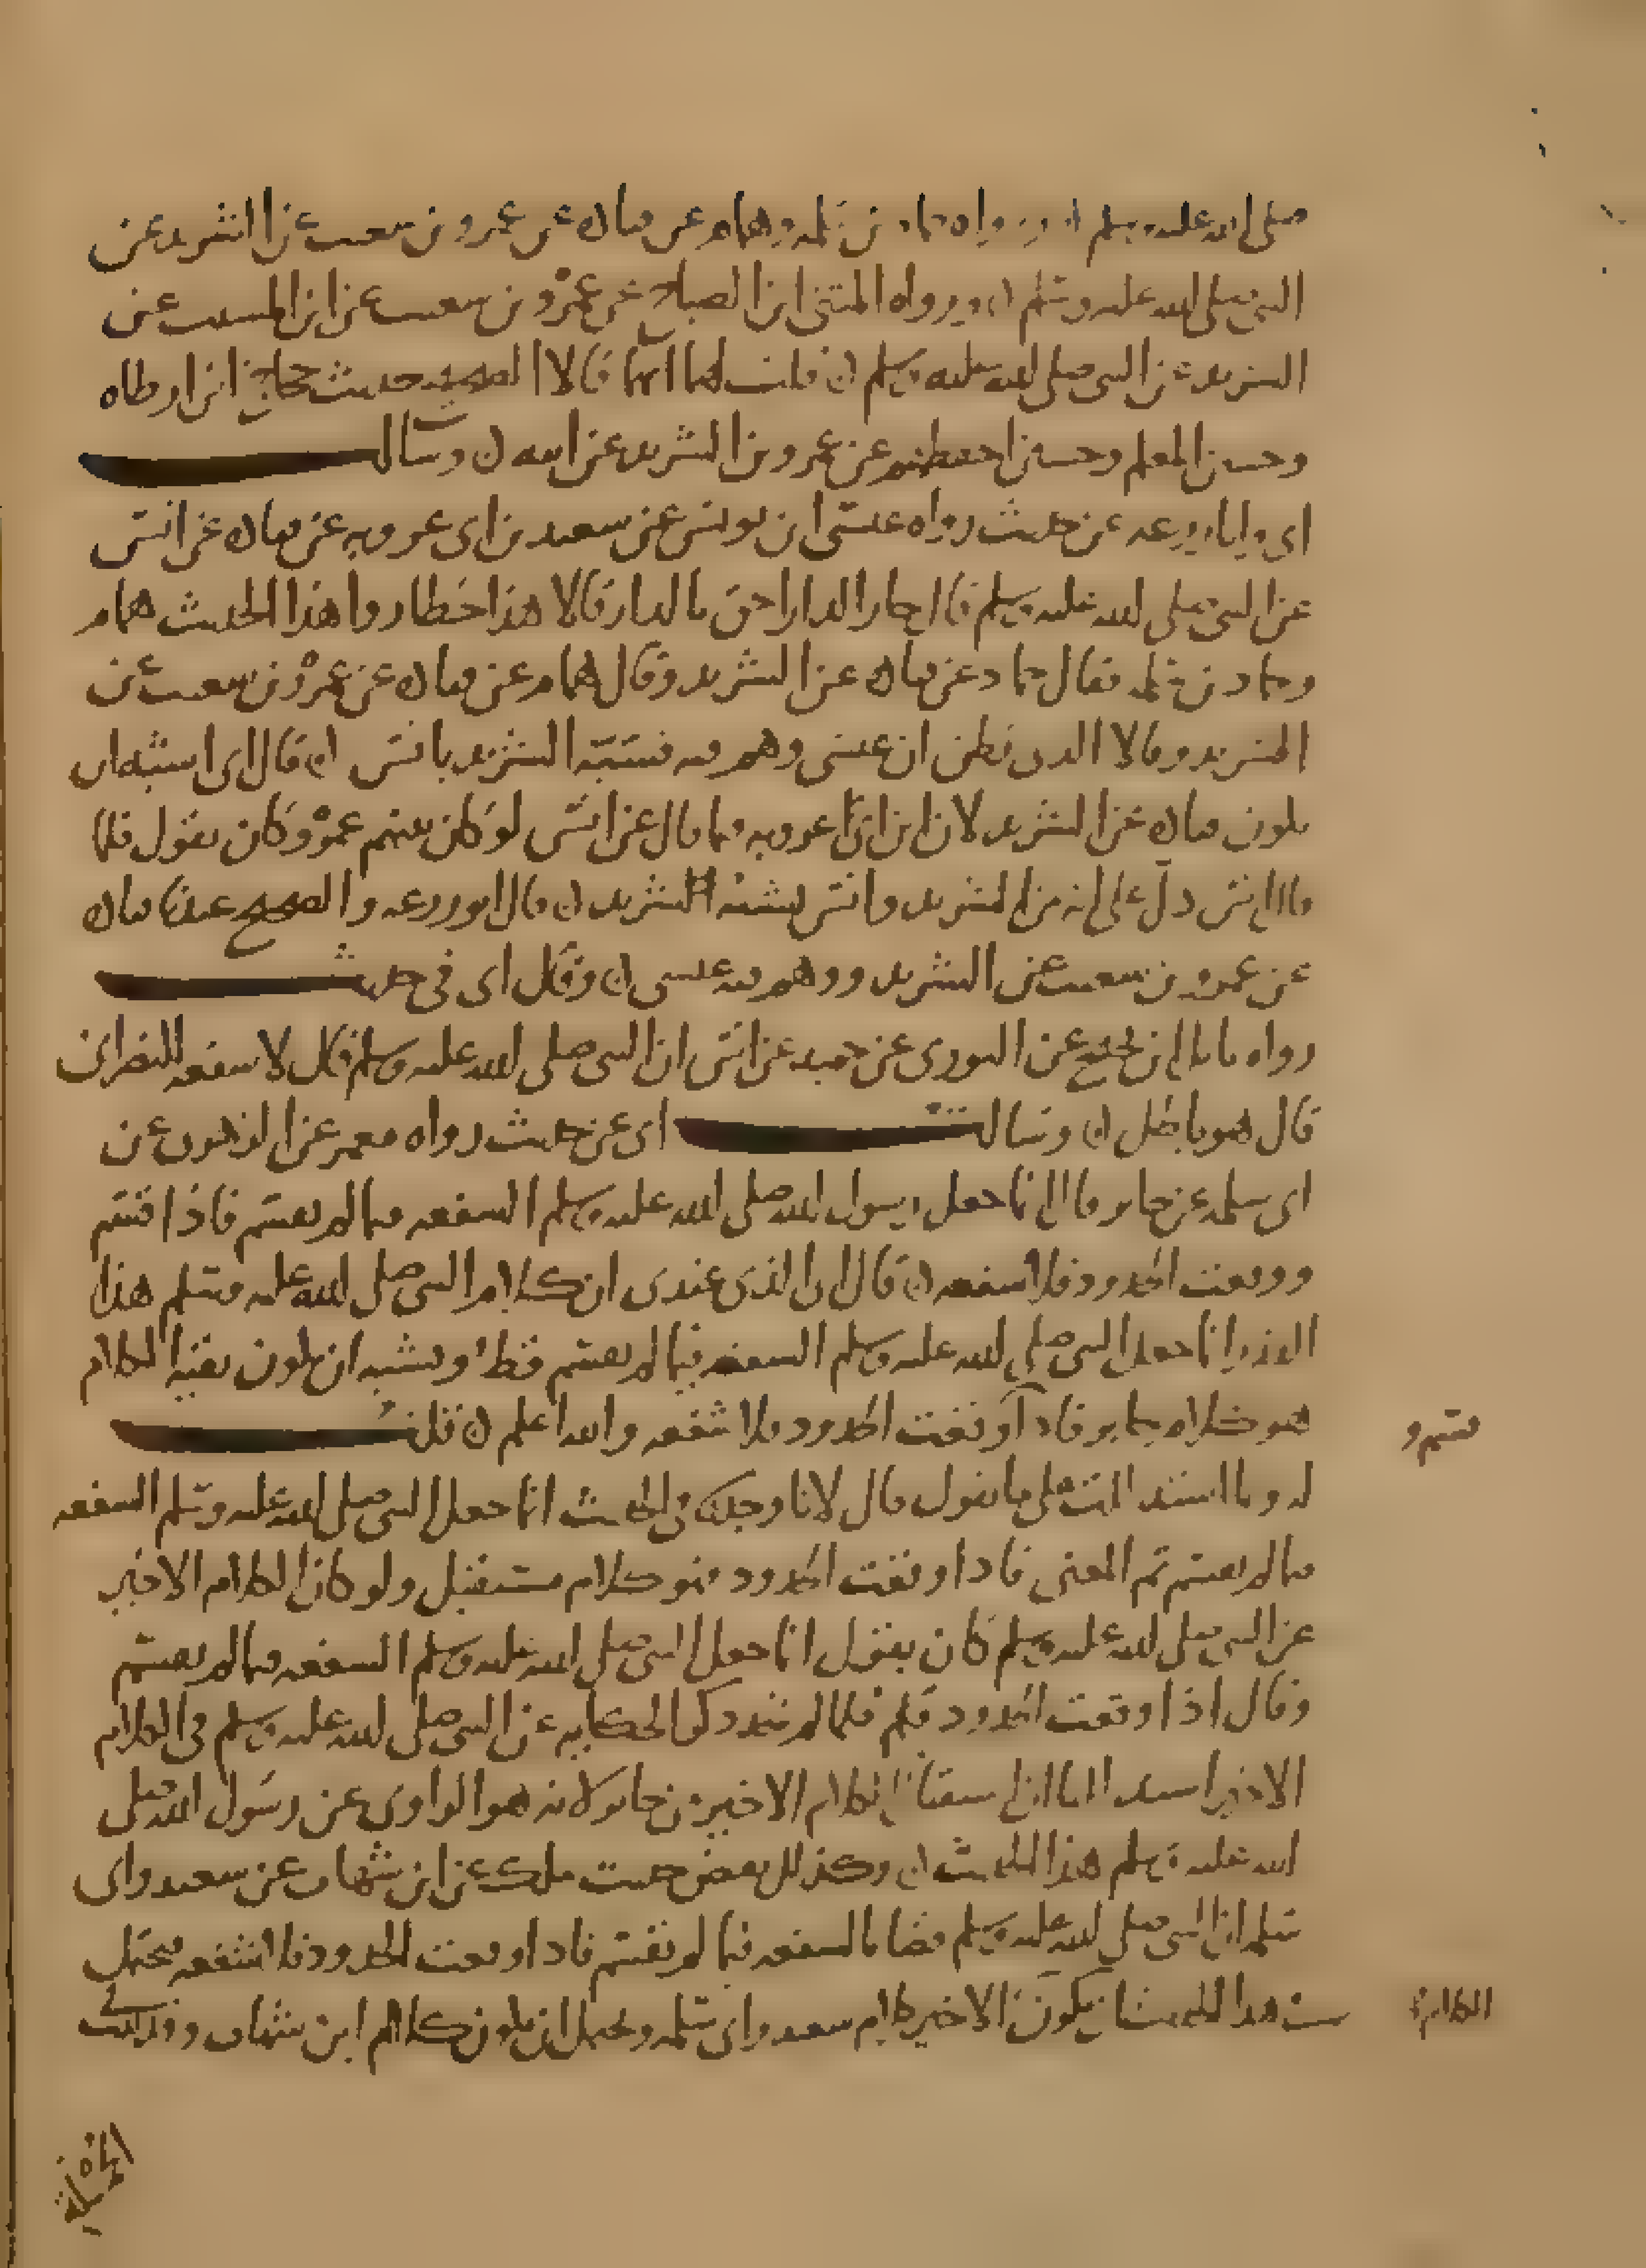 صلى الله عليه وسلم ورواه حماد بن سلمه وهمام عن قتاده عن عمرو بن شعيب عن الشريد عن
النبي صلى الله عليه وسلم ورواه المثنى ابن الصباح عن عمرو بن شعيب عن ابن المسيب عن
الشريد عن النبي صلى الله عليه وسلم قلت لهما ايهما قالا الصحيح حديث حجاج ابن ارطاه
وحسين المعلم وحسين احفظهم عن عمرو بن الشريد عن ابيه وسالت
ابي وابا زرعه عن حديث رواه عيسى ابن يونس عن سعيد بن ابي عروبه عن قتاده عن انس
عن النبي صلى الله عليه وسلم قال جار الدار احق بالدار قالا هذا خطا روا هذا الحديث همام
وحماد بن سلمه فقال حماد عن قتاده عن الشريد وقال همام عن قتاده عن عمرو بن شعيب عن
الشريد وقالا الذي نظن ان عيسى وهم فيه فشبه الشريد بانس قال ابي اشبه ان
يكون قتاده عن الشريد لان ابن ابي عروبه فيما قال عن انس لو كان بينهم عمرو كان يقول فلما
قال انس دل على انه من الشريد وانس يشبه الشريد قال ابو زرعه والصحيح عندنا قتاده
عن عمرو بن شعيب عن الشريد ووهم فيه عيسى وقال ابي في حديث
رواه نائل بن نجيح عن الثوري عن حميد عن انس ان النبي صلى الله عليه وسلم قال لا شفعه للنصراني
قال هو باطل وسالت ابي عن حديث رواه معمر عن الزهري عن
ابي سلمه عن جابر قال انما جعل رسول الله صلى الله عليه وسلم الشفعه فيما لم يقسم فاذا قسم
ووقعت الحدود فلا شفعه قال ابي الذي عندي ان كلام النبي صلى الله عليه وسلم هذا
القدر انما جعل النبي صلى الله عليه وسلم الشفعه فيما لم يقسم قط ويشبه ان يكون بقيه الكلام
هو كلام جابر فاذا قسم ووقعت الحدود فلا شفعه والله اعلم قلت
له وبما استدللت على ما تقول قال لانا وجدنا في الحديث انما جعل النبي صلى الله عليه وسلم الشفعه
فيما لم يقسم تم المعنى فاذا وقعت الحدود فهو كلام مستقبل ولو كان الكلام الاخير
عن النبي صلى الله عليه وسلم كان يقول انما جعل النبي صلى الله عليه وسلم الشفعه فيما لم يقسم
وقال اذا وقعت الحدود فلما لم نجد ذكر الحكايه عن النبي صلى الله عليه وسلم في الكلام
الاخير استدللنا ان الكلام الاخير من جابر لانه هو الراوي عن رسول الله صلى
الله عليه وسلم هذا الحديث وكذلك بعض حديث ملك عن ابن شهاب عن سعيد وابي
سلمه ان النبي صلى الله عليه وسلم قضا بالشفعه فيما لم يقسم فاذا وقعت الحدود فلا شفعه فيحتمل
هذا الحديث ان يكون الكلام الاخير كلام سعيد وابي سلمه ويحتمل ان يكون كلام ابن شهاب وقد